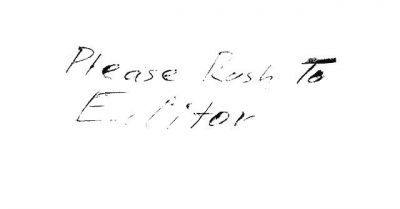 Please Rush To
Editor